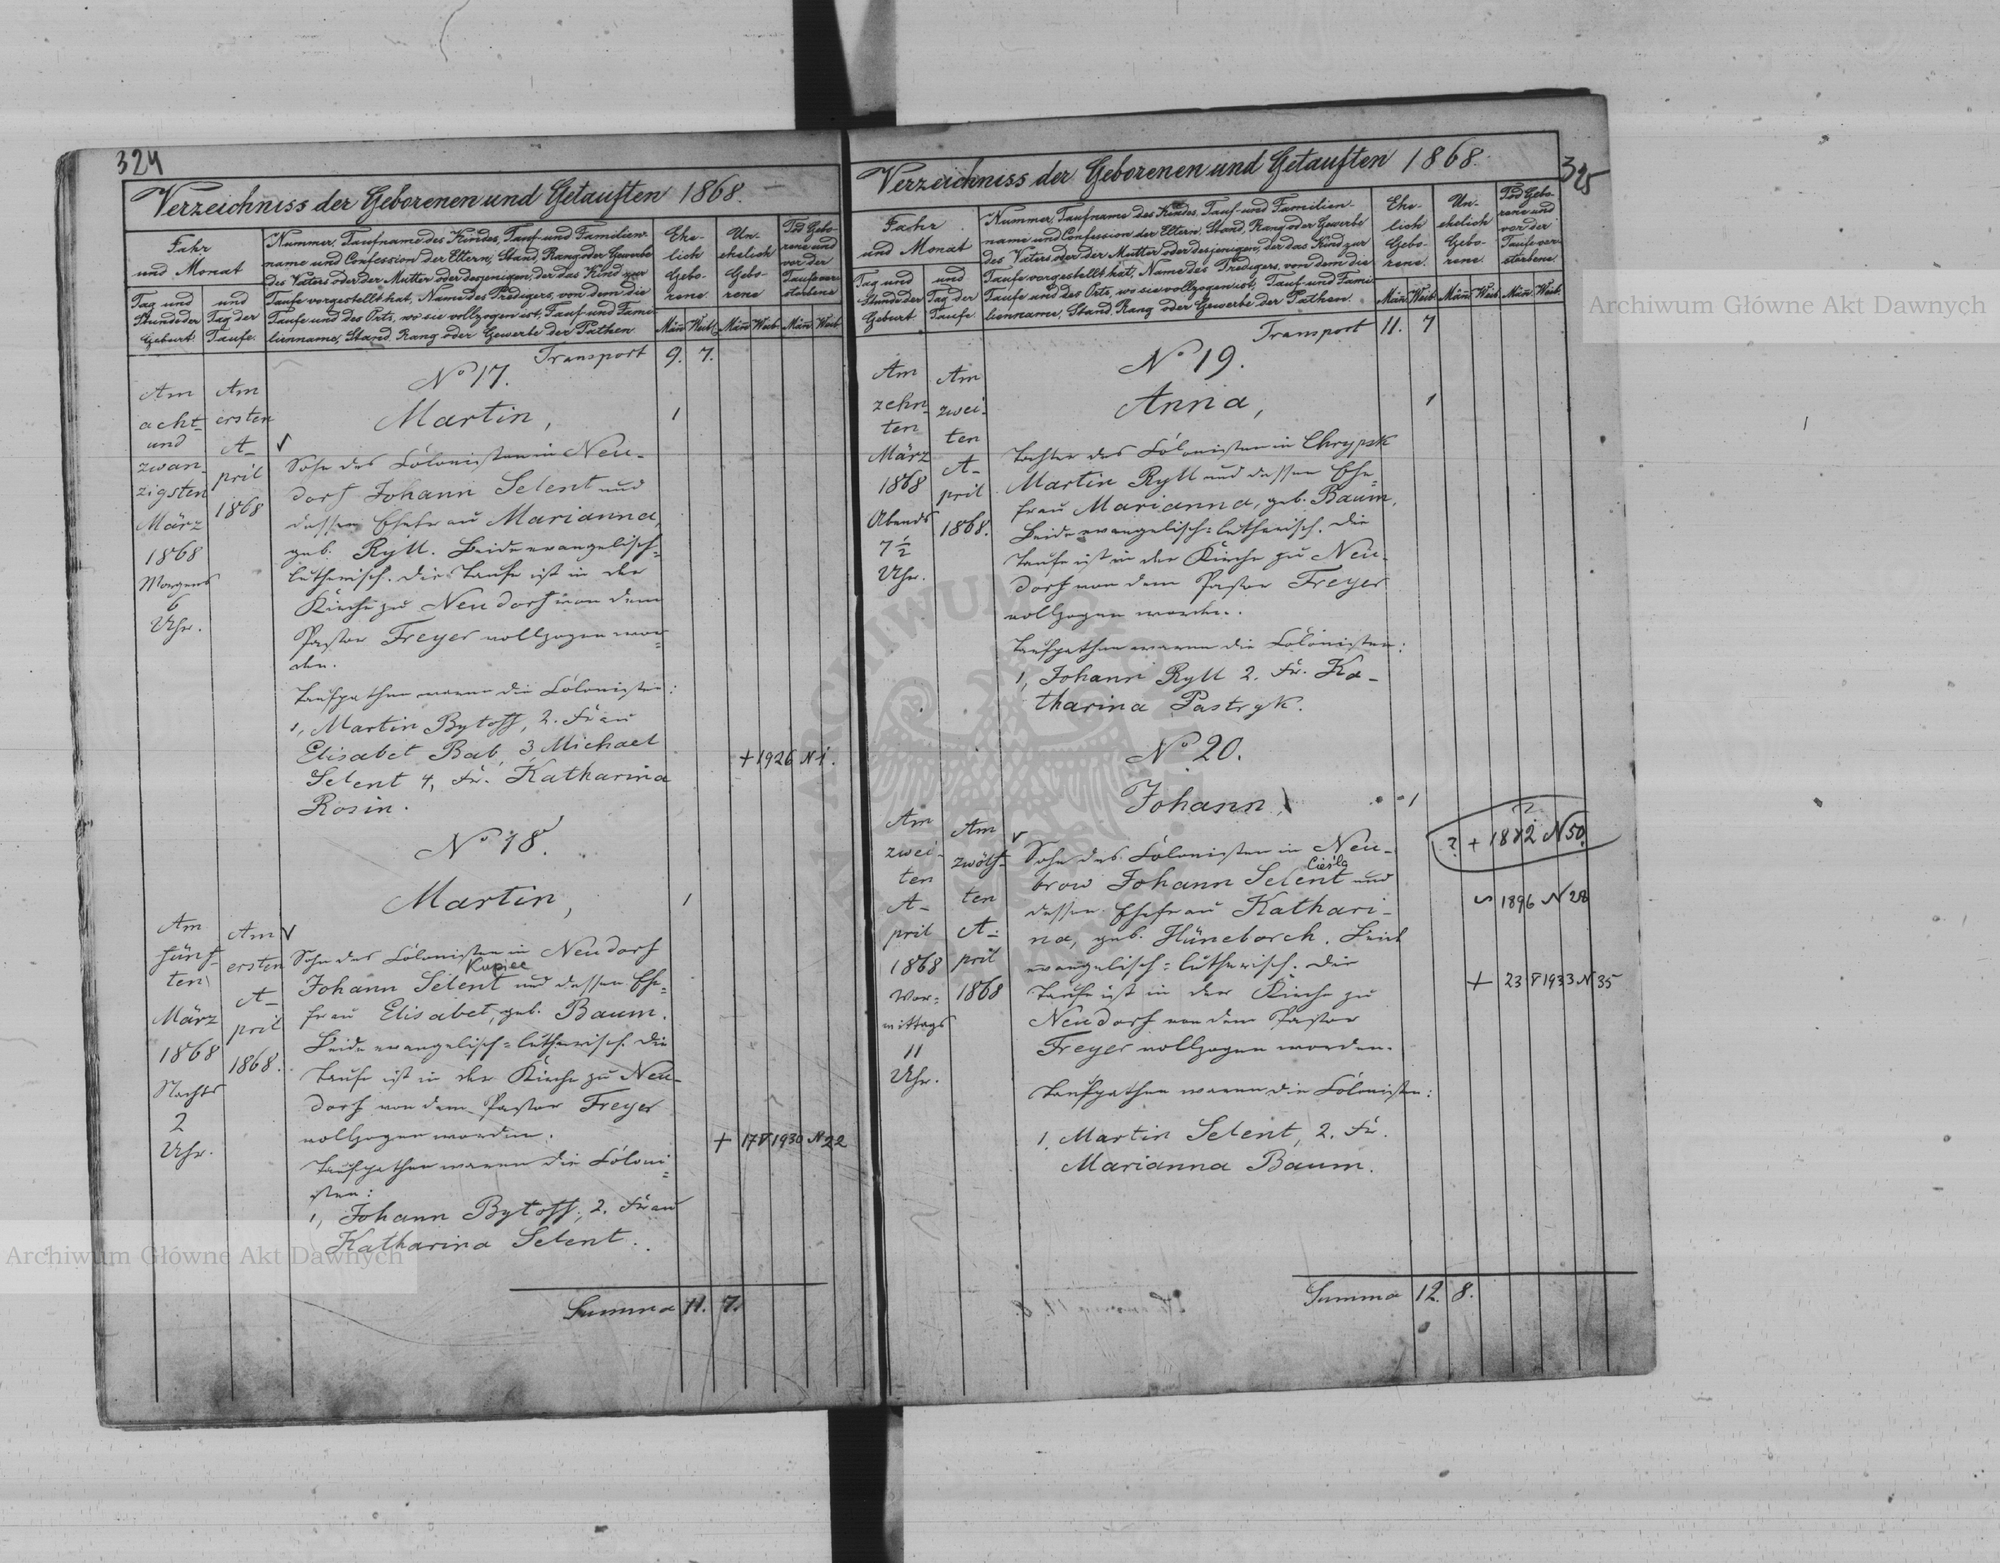 324
Verzeichniss der Geborenen und Getauften 1868.
Jahr
und Monat
Tag und
Stunde der
Geburt.
und
Tag der
Taufe.
Nummer, Taufname des Kindes, Tauf- und Familien-
name und Confession der Eltern, Stand, Rang oder Gewerbe
des Vaters oder der Mutter oder desjenigen, der das Kind zur
Taufe vorgestellt hat, Name des Predigers, von dem die
Taufe und des Orts, wo sie vollzogen ist, Tauf- und Fami-
lienname, Stand, Rang oder Gewerbe der Pathen.
Ehe-
lich
Gebo-
rene.
Un-
ehelich
Gebo-
rene
Tod Gebo-
rene und
vor der
Taufe ver-
storbene
Män̄ Weib. Män̄ Weib Män̄ Weib
Transport 9. 7.
No 17.
Am
acht-
und
zwan
zigsten
März
1868
Morgens
6
Uhr.
Am
ersten
A-
pril
1868
Martin, 1
Sohn des Colonisten in Neu-
dorf Johann Selent und
dessen Ehefrau Marianna,
geb. Ryll. Beide evangelisch-
lutherisch. Die Taufe ist in der
Kirche zu Neudorf von dem
Pastor Freyer vollzogen wor-
den.
Taufpathen waren die Colonisten:
1, Martin Bytoff, 2. Frau
Elisabet Bab, 3, Michael
Selent 4, Fr. Katharina
Rosin.
+ 1926 N 1.
No 18.
Am
fünf-
ten
März
1868
Nachts
2
Uhr.
Am
ersten
A-
pril
1868.
Martin, 1
Sohn des Colonisten in Neudorf
Kupiec
Johann Selent und dessen Ehe-
frau Elisabet, geb. Baum.
Beide evangelisch-lutherisch. Die
Taufe ist in der Kirche zu Neu-
dorf von dem Pastor Freyer
vollzogen worden.
Taufpathen waren die Coloni-
sten:
1, Johann Bytoff, 2. Frau
Katharina Selent.
1930 N 22
Summa 11. 7.
325
Verzeichniss der Geborenen und Getauften 1868.
Jahr
und Monat
Tag und
Stunde der
Geburt
und
Tag der
Taufe
Nummer, Taufname des Kindes, Tauf- und Familien-
name und Confession der Eltern, Stand, Rang oder Gewerbe
des Vaters oder der Mutter oder desjenigen, der das Kind zur
Taufe vorgestellt hat, Name des Predigers, von dem die
Taufe und des Orts, wo sie vollzogen ist, Tauf- und Fami-
lienname, Stand, Rang oder Gewerbe der Pathen.
Ehe-
lich
Gebo-
rene.
Un-
ehelich
Gebo-
rene.
Tod Gebo-
rene und
vor der
Taufe ver-
storbene
Män̄ Weib. Män̄ Weib Män̄ Weib
Transport 11. 7
No 19.
Am
zehn-
ten
März
1868
Abends
7 1/2
Uhr.
Am
zwei-
ten
A-
pril
1868.
Anna, 1
Tochter des Colonisten in Chrypsk
Martin Ryll und dessen Ehe-
frau Marianna, geb. Baum,
Beide evangelisch-lutherisch. Die
Taufe ist in der Kirche zu Neu-
dorf von dem Pastor Freyer
vollzogen worden.
Taufpathen waren die Colonisten:
1, Johann Ryll 2. Fr. Ka-
tharina Pastryk.
No 20.
Am
zwei-
ten
A-
pril
1868
Vor-
mittags
11
Uhr.
Am
zwölf-
ten
A-
pril
1868
Johann, 1
Sohn des Colonisten in Neu-
Cieśla
brow Johann Selent und
dessen Ehefrau Kathari-
na, geb. Hüneborch. Beide
evangelisch-lutherisch. Die
Taufe ist in der Kirche zu
Neudorf von dem Pastor
Freyer vollzogen worden.
Taufpathen waren die Colonisten:
1, Martin Selent, 2. Fr.
Marianna Baum.
N 50
1896 N 28
1933 N 35
Summa 12. 8.
Archiwum Główne Akt Dawnych
Archiwum Główne Akt Dawnych